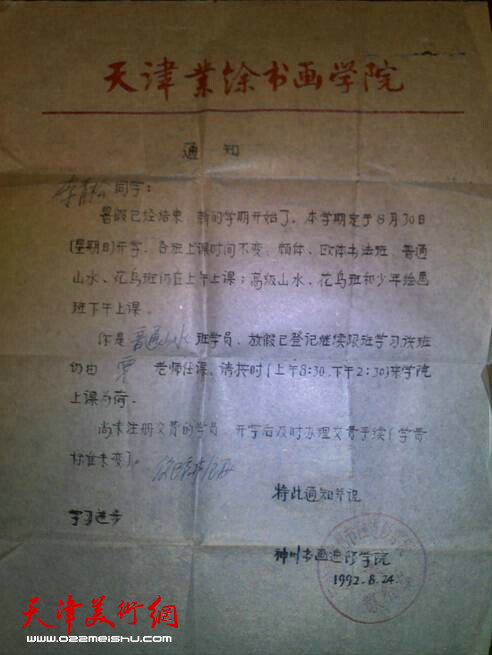 天津业馀书画学院
通知
李青松同学：
暑假已经结束，新的学期开始了。本学期定于8月30日
(星期日)开学，各班上课时间不变，颜体、欧体书法班、普通
山水、花鸟班仍在上午上课；高级山水、花鸟班和少年绘画
班下午上课。
你是普通山水班学员，放假已登记继续跟班学习该班
仍由 老师任课，请按时(上午8:30.下午2:30)来学院
上课为荷。
尚未注册交费的学员，开学后及时办理交费手续(学费
标准未变)。
特此通知并祝
学习进步
神州书画进修学院
1992.8.24.
天津美術網
www.022meishu.com